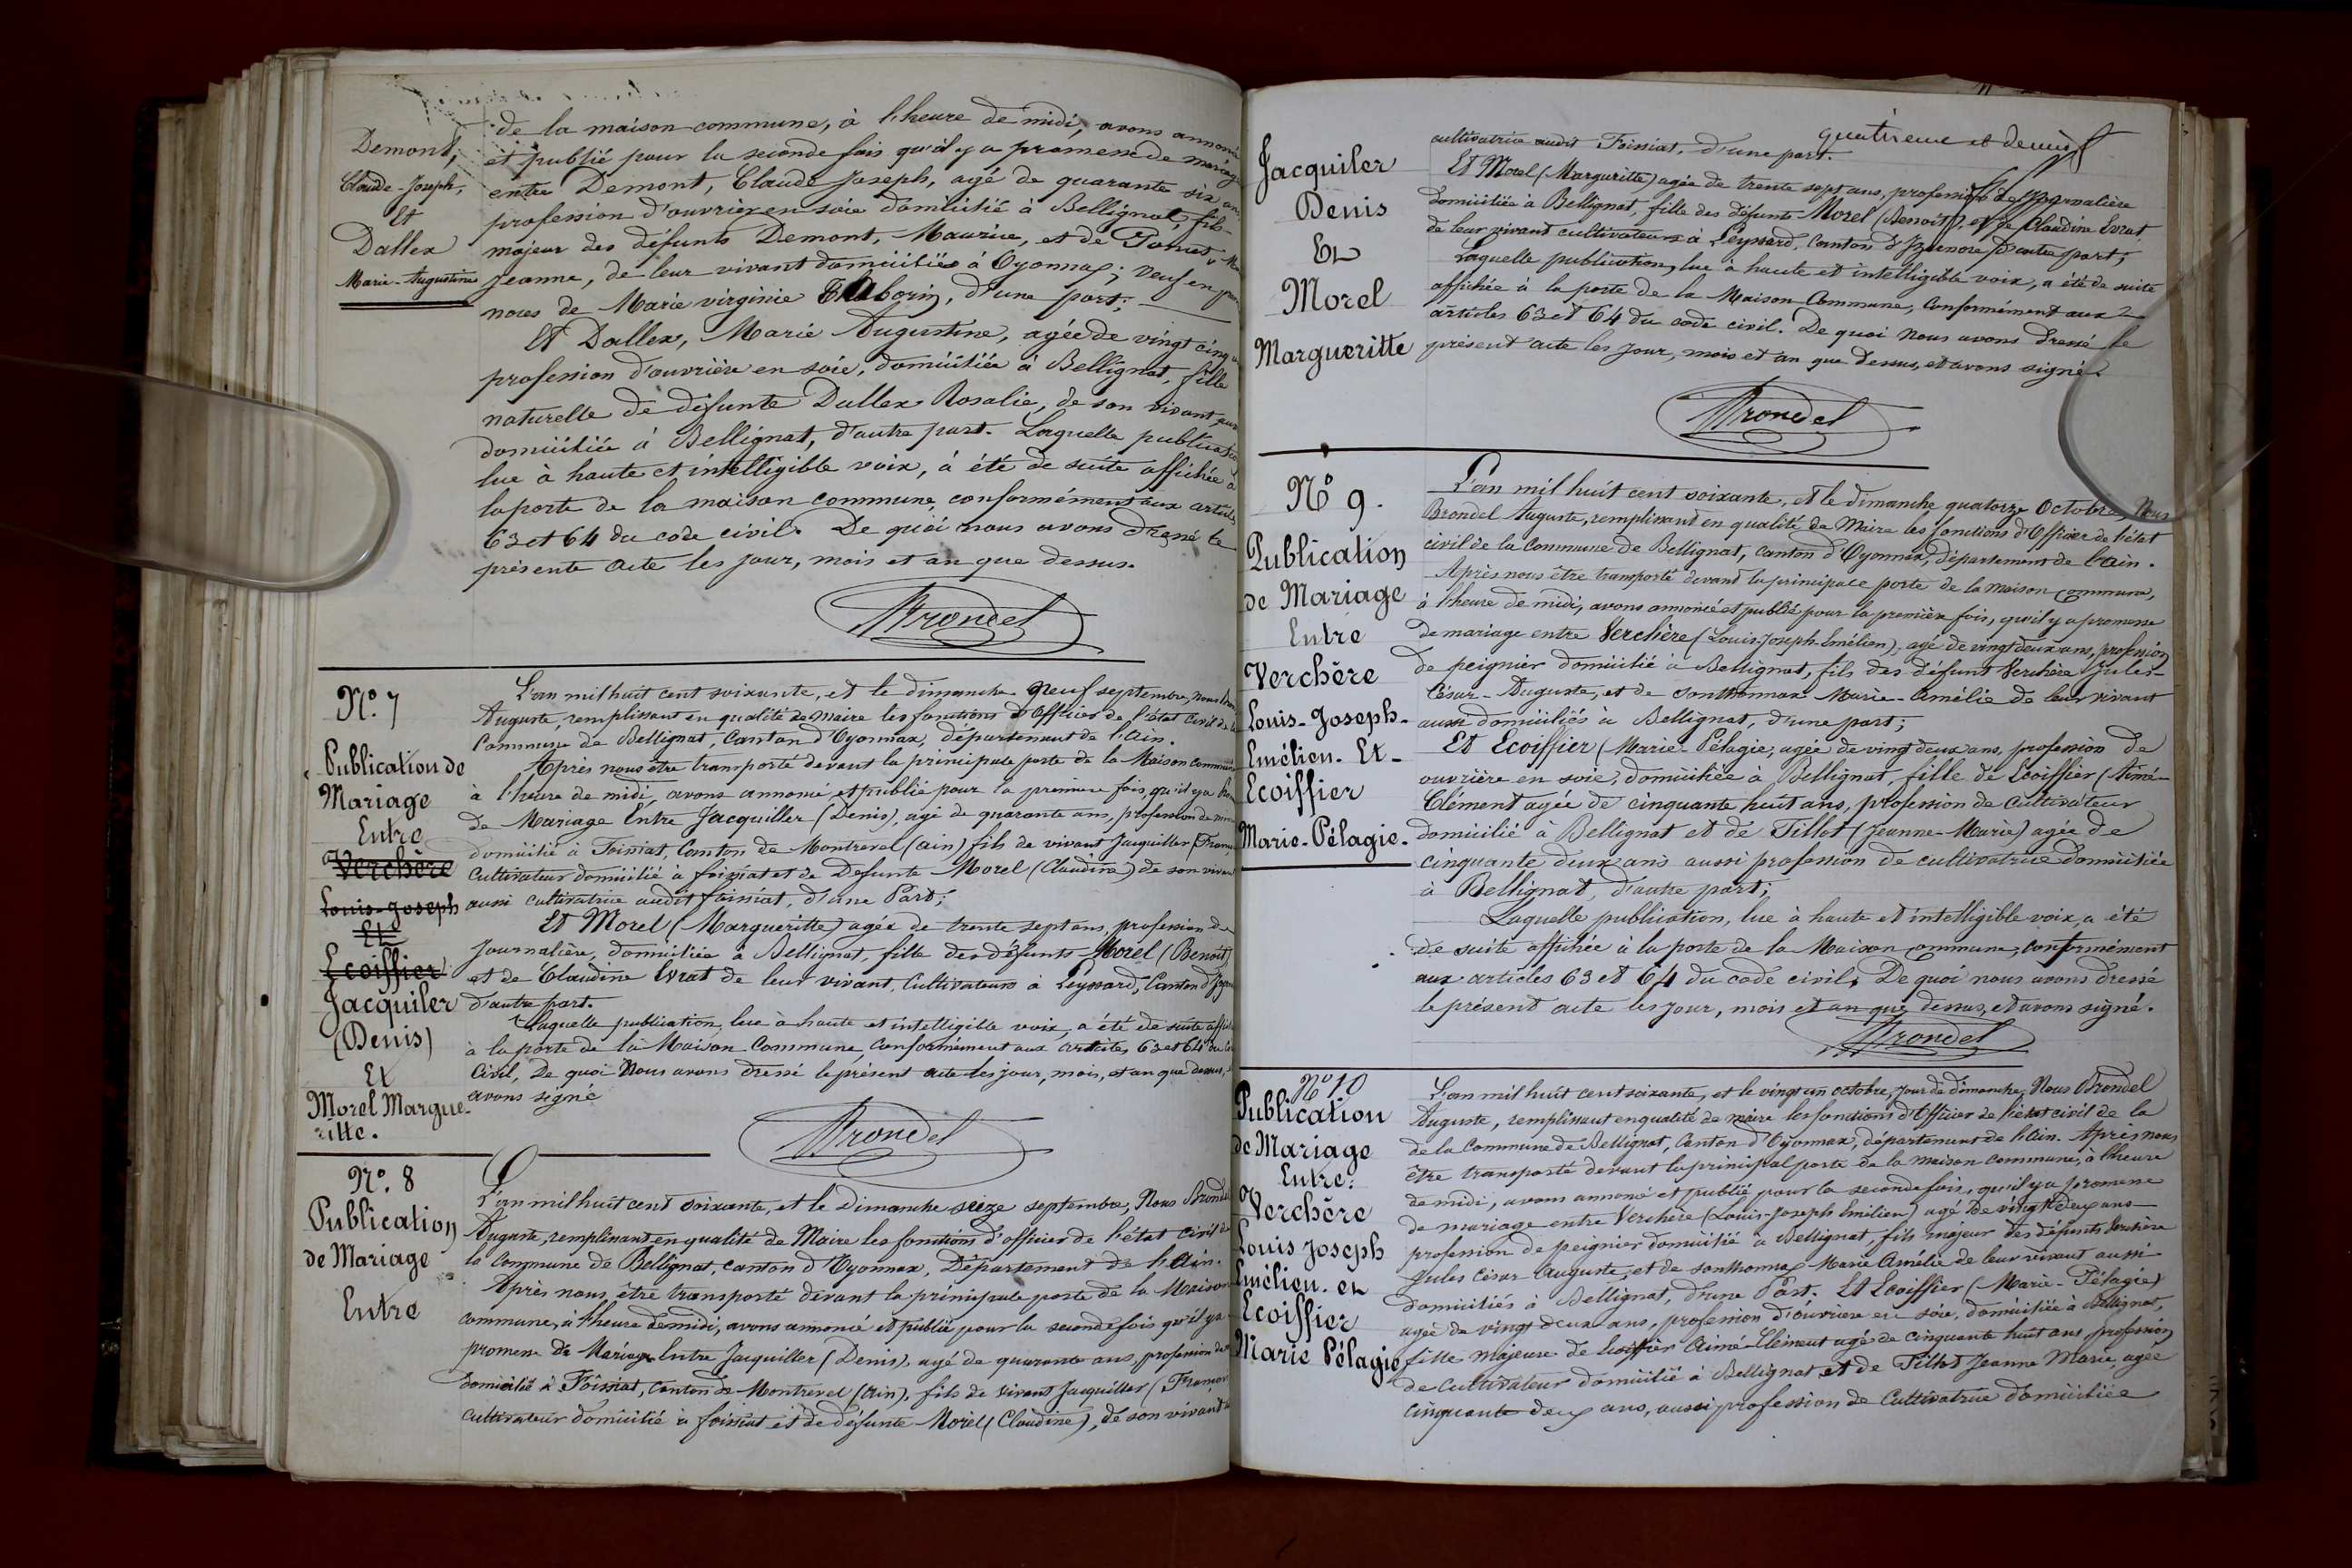 Demont,
Claude-Joseph,
Et
Dallex
Marie-Augustine
de la maison commune, à l'heure de midi, avons annoncé
et publié pour la seconde fois qu'il y a promesse de mariage
entre Demont, Claude Joseph, agé de quarante six ans,
profession d'ouvrier en soie domicilié à Bellignat, fils
majeur des défunts Demont, Maurice, et de
Jeanne, de leur vivant domiciliés à Oyonnax; veuf en
noces de Marie virginie d'une part;
Et Dallex, Marie Augustine, agée de vingt cinq
profession d'ouvrière en soie, domiciliée à Bellignat, fille
naturelle de défunte Dallex Rosalie, de son vivant
domiciliée à Bellignat, d'autre part. Laquelle publication
lue à haute et intelligible voix, à été de suite affichée à
la porte de la maison commune, conformément aux articles
63 et 64 du code civil. De quoi nous avons dressé le
présente acte les jour, mois et an que dessus.
Brondel
Nº 7
Publication de
Mariage
Entre
Verchère
Louis-Joseph
Et
Ecoiffier
Jacquiler
(Denis)
Et
Morel Margue-
ritte.
L'an mil huit cent soixante, et le dimanche neuf septembre, nous
Auguste, remplissant en qualité de Maire les fonctions d'Officier de l'état civil de la
Commune de Bellignat, Canton d'Oyonnax, département de l'Ain.
Après nous être transporté devant la principale porte de la Maison commune
à l'heure de midi, avons annoncé et publié pour la première fois, qu'il y a
de Mariage Entre Jacquiller (Denis), agé de quarante ans, profession de
domicilié à Foissiat, Canton de Montrevel (ain) fils de vivant Jacquiller
Cultivateur domicilié à foissiat et de Defunte Morel (Claudine) de son vivant
aussi cultivatrice audit foissiat, d'une Part;
Et Morel (Margueritte) agée de trente sept ans, profession de
Journalière, domiciliée à Bellignat, fille des défunts Morel (Benoît)
et de Claudine Evrat de leur vivant, Cultivateurs à Leyssard, Canton
d'autre part.
Laquelle publication, lue à haute et intelligible voix, a été de suite
à la porte de la Maison Commune, conformément aux articles 63 et 64 du
Civil, De quoi Nous avons dressé le présent acte les jour, mois, et an que dessus,
avons signé
Brondel
Nº. 8
Publication
de Mariage
Entre
L'an mil huit cent soixante, et le Dimanche seize septembre, Nous Brondel
Auguste, remplissant en qualité de Maire les fonctions d'officier de l'état civil de
la Commune de Bellignat, canton d'Oyonnax, Département de l'Ain.
Après nous être transporté devant la principale porte de la Maison
commune, à l'heure de midi, avons annoncé et publié pour la seconde fois qu'il y a
promesse de Mariage Entre Jacquiller (Denis), agé de quarante ans, profession de
domicilié à Foissiat, canton de Montrevel (Ain), fils de vivant Jacquiller
cultivateur domicilié à foissiat et de défunte Morel (Claudine), de son vivant
Jacquiler
Denis
Et
Morel
Margueritte
quatrieme et dernier
cultivatrice audit Foissiat, d'une part.
Et Morel (Margueritte) agée de trente sept ans, profession de Journalière
domiciliée à Bellignat, fille des défunts Morel (Benoît), et de Claudine Evrat
de leur vivant cultivateurs à Leyssard, Canton d'Izernore, d'autre part;
Laquelle publication, lue à haute et intelligible voix, a été de suite
affichée à la porte de la Maison Commune, conformément aux
articles 63 et 64 du code civil. De quoi nous avons dressé le
présent acte les jour, mois et an que dessus, et avons signé.
Brondel
Nº 9.
Publication
de Mariage
Entre
Verchère
Louis-Joseph-
Emélien. Et-
Ecoiffier
Marie-Pélagie.
L'an mil huit cent soixante, et le dimanche quatorze Octobre, Nous
Brondel Auguste, remplissant en qualité de Maire les fonctions d'Officier de l'état
civil de la Commune de Bellignat, canton d'Oyonnax, département de l'ain.
Après nous être transporté devant la principale porte de la maison commune,
à l'heure de midi, avons annoncé et publié pour la première fois, qu'il y a promesse
de mariage entre Verchère (Louis-Joseph-Emélien), agé de vingt deux ans, profession
de peignier domicilié à Bellignat, fils des défunt Verchère Jules-
César-Auguste, et de Sonthonnax Marie-Amélie de leur vivant
aussi domiciliés à Bellignat, d'une part;
Et Ecoiffier (Marie-Pélagie, agée de vingt deux ans, profession de
ouvrière en soie, domiciliée à Bellignat, fille de Ecoiffier (Aimé-
Clément agée de cinquante huit ans, profession de Cultivateur
domicilié à Bellignat et de Tillot (Jeanne-Marie) agée de
cinquante deux ans aussi profession de cultivatrice domiciliée
à Bellignat, d'autre part;
Laquelle publication, lue à haute et intelligible voix, a été
de suite affichée à la porte de la Maison commune, conformément
aux articles 63 et 64 du code civil. De quoi nous avons dressé
le présent acte les jour, mois et an que dessus, et avons signé.
Brondel
Nº 10
Publication
de Mariage
Entre:
Verchère
Louis Joseph
Emélien. et
Ecoiffier
Marie Pélagie
L'an mil huit cent soixante, et le vingt un octobre, jour de dimanche, Nous Brondel
Auguste, remplissant en qualité de maire les fonctions d'Officier de l'état civil de la
de la Commune de Bellignat, Canton d'Oyonnax, département de l'Ain. Après nous
être transporté devant la principal porte de la maison commune, à l'heure
de midi, avons annoncé et publié pour la seconde fois, qu'il y a promesse
de mariage entre Verchère (Louis-Joseph Emélien) agé de vingt deux ans
profession de peignier domicilié à Bellignat, fils majeur des défunts Verchère
Jules César Auguste, et de Sonthonnax Marie Amélie de leur vivant aussi
domiciliés à Bellignat, d'une Part. Et Ecoiffier (Marie-Pélagie)
agée de vingt deux ans, profession d'ouvrière en soie, domiciliée à Bellignat,
fille majeure de Ecoiffier Aimé-Clément agé de cinquante huit ans profession
de Cultivateur domicilié à Bellignat et de Tillot Jeanne Marie, agée
cinquante deux ans, aussi profession de Cultivatrice domiciliée